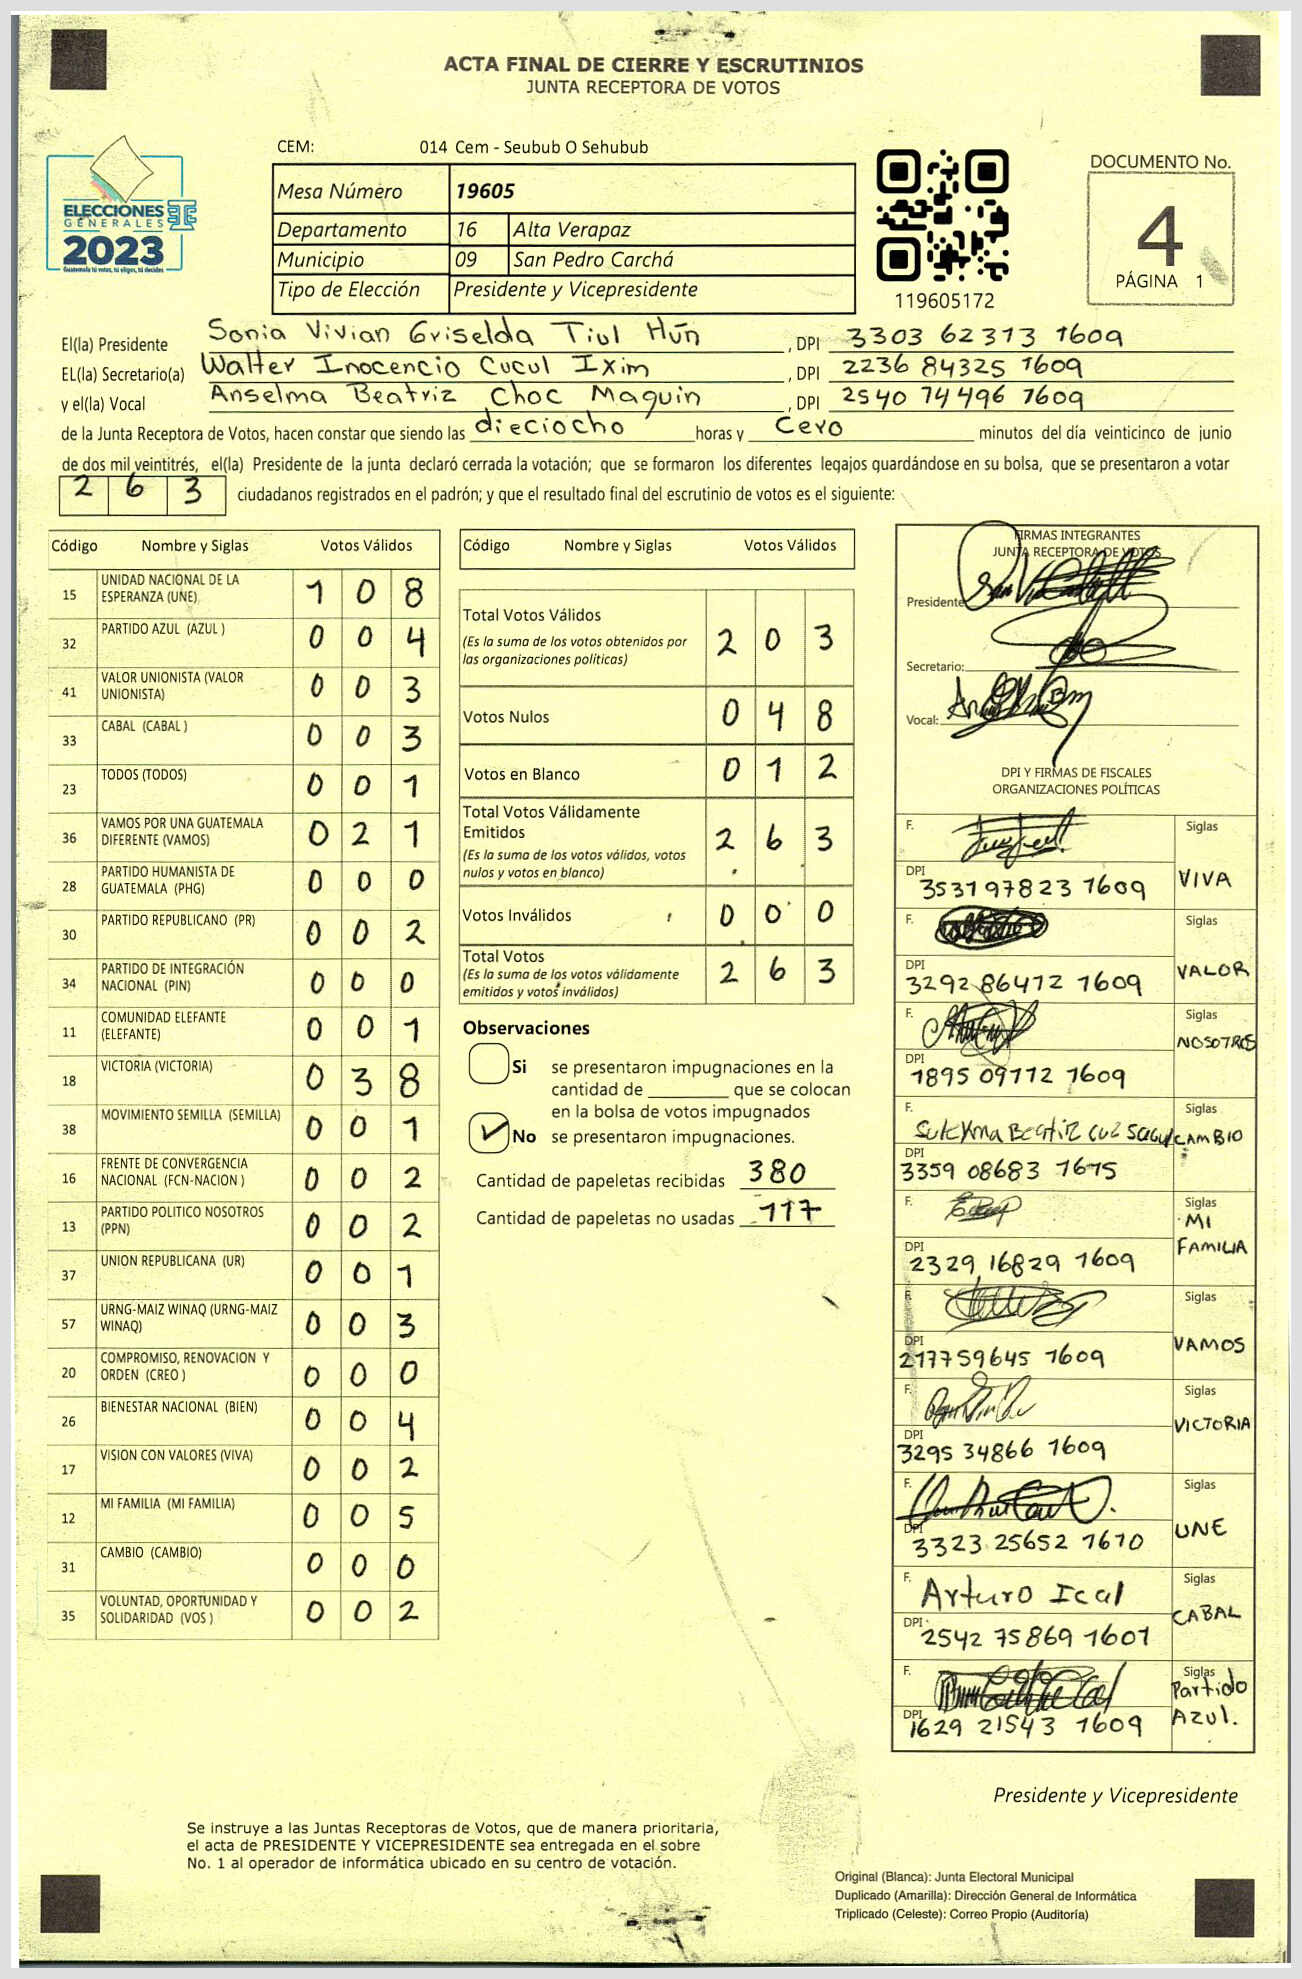 ACTA FINAL DE CIERRE Y ESCRUTINIOS
JUNTA RECEPTORA DE VOTOS
CEM: 014 Cem - Seubub O Sehubub
Mesa Número 19605
Departamento 16 Alta Verapaz
Municipio 09 San Pedro Carchá
Tipo de Elección Presidente y Vicepresidente
ELECCIONES
GENERALES
2023
Guatemala tú votas, tú eliges, tú decides
119605172
DOCUMENTO No.
4
PÁGINA 1
El(la) Presidente Sonia Vivian Griselda Tiul Hún , DPI 3303 62313 1609
EL(la) Secretario(a) Walter Inocencio Cucul Ixim , DPI 2236 84325 1609
y el(la) Vocal Anselma Beatriz Choc Maquin , DPI 2540 74496 1609
de la Junta Receptora de Votos, hacen constar que siendo las dieciocho horas y Cero minutos del día veinticinco de junio
de dos mil veintitrés, el(la) Presidente de la junta declaró cerrada la votación; que se formaron los diferentes legajos guardándose en su bolsa, que se presentaron a votar
2 6 3 ciudadanos registrados en el padrón; y que el resultado final del escrutinio de votos es el siguiente:
Código Nombre y Siglas Votos Válidos
15 UNIDAD NACIONAL DE LA ESPERANZA (UNE) 1 0 8
32 PARTIDO AZUL (AZUL ) 0 0 4
41 VALOR UNIONISTA (VALOR UNIONISTA) 0 0 3
33 CABAL (CABAL ) 0 0 3
23 TODOS (TODOS) 0 0 1
36 VAMOS POR UNA GUATEMALA DIFERENTE (VAMOS) 0 2 1
28 PARTIDO HUMANISTA DE GUATEMALA (PHG) 0 0 0
30 PARTIDO REPUBLICANO (PR) 0 0 2
34 PARTIDO DE INTEGRACIÓN NACIONAL (PIN) 0 0 0
11 COMUNIDAD ELEFANTE (ELEFANTE) 0 0 1
18 VICTORIA (VICTORIA) 0 3 8
38 MOVIMIENTO SEMILLA (SEMILLA) 0 0 1
16 FRENTE DE CONVERGENCIA NACIONAL (FCN-NACION ) 0 0 2
13 PARTIDO POLITICO NOSOTROS (PPN) 0 0 2
37 UNION REPUBLICANA (UR) 0 0 1
57 URNG-MAIZ WINAQ (URNG-MAIZ WINAQ) 0 0 3
20 COMPROMISO, RENOVACION Y ORDEN (CREO ) 0 0 0
26 BIENESTAR NACIONAL (BIEN) 0 0 4
17 VISION CON VALORES (VIVA) 0 0 2
12 MI FAMILIA (MI FAMILIA) 0 0 5
31 CAMBIO (CAMBIO) 0 0 0
35 VOLUNTAD, OPORTUNIDAD Y SOLIDARIDAD (VOS ) 0 0 2
Código Nombre y Siglas Votos Válidos
Total Votos Válidos 2 0 3
(Es la suma de los votos obtenidos por
las organizaciones políticas)
Votos Nulos 0 4 8
Votos en Blanco 0 1 2
Total Votos Válidamente
Emitidos 2 6 3
(Es la suma de los votos válidos, votos
nulos y votos en blanco)
Votos Inválidos 0 0 0
Total Votos 2 6 3
(Es la suma de los votos válidamente
emitidos y votos inválidos)
Observaciones
Si se presentaron impugnaciones en la
cantidad de ________ que se colocan
en la bolsa de votos impugnados
No se presentaron impugnaciones.
Cantidad de papeletas recibidas 380
Cantidad de papeletas no usadas 117
FIRMAS INTEGRANTES
JUNTA RECEPTORA DE VOTOS
Presidente:
Secretario:
Vocal:
DPI Y FIRMAS DE FISCALES
ORGANIZACIONES POLÍTICAS
F. Siglas
DPI 3531 97823 1609 VIVA
F. Siglas
DPI 3292 86472 1609 VALOR
F. Siglas
DPI 1895 09112 1609 NOSOTROS
F. Siglas
DPI 3359 08683 1615 CAMBIO
F. Siglas
DPI 2329 16829 1609 MI FAMILIA
F. Siglas
DPI 2177 59645 1609 VAMOS
F. Siglas
DPI 3295 34866 1609 VICTORIA
F. Siglas
DPI 3323 25652 1610 UNE
F. Arturo Ical Siglas
DPI 2542 75869 1601 CABAL
F. Siglas
DPI 1629 21543 1609 Partido Azul.
Presidente y Vicepresidente
Se instruye a las Juntas Receptoras de Votos, que de manera prioritaria,
el acta de PRESIDENTE Y VICEPRESIDENTE sea entregada en el sobre
No. 1 al operador de informática ubicado en su centro de votación.
Original (Blanca): Junta Electoral Municipal
Duplicado (Amarilla): Dirección General de Informática
Triplicado (Celeste): Correo Propio (Auditoría)